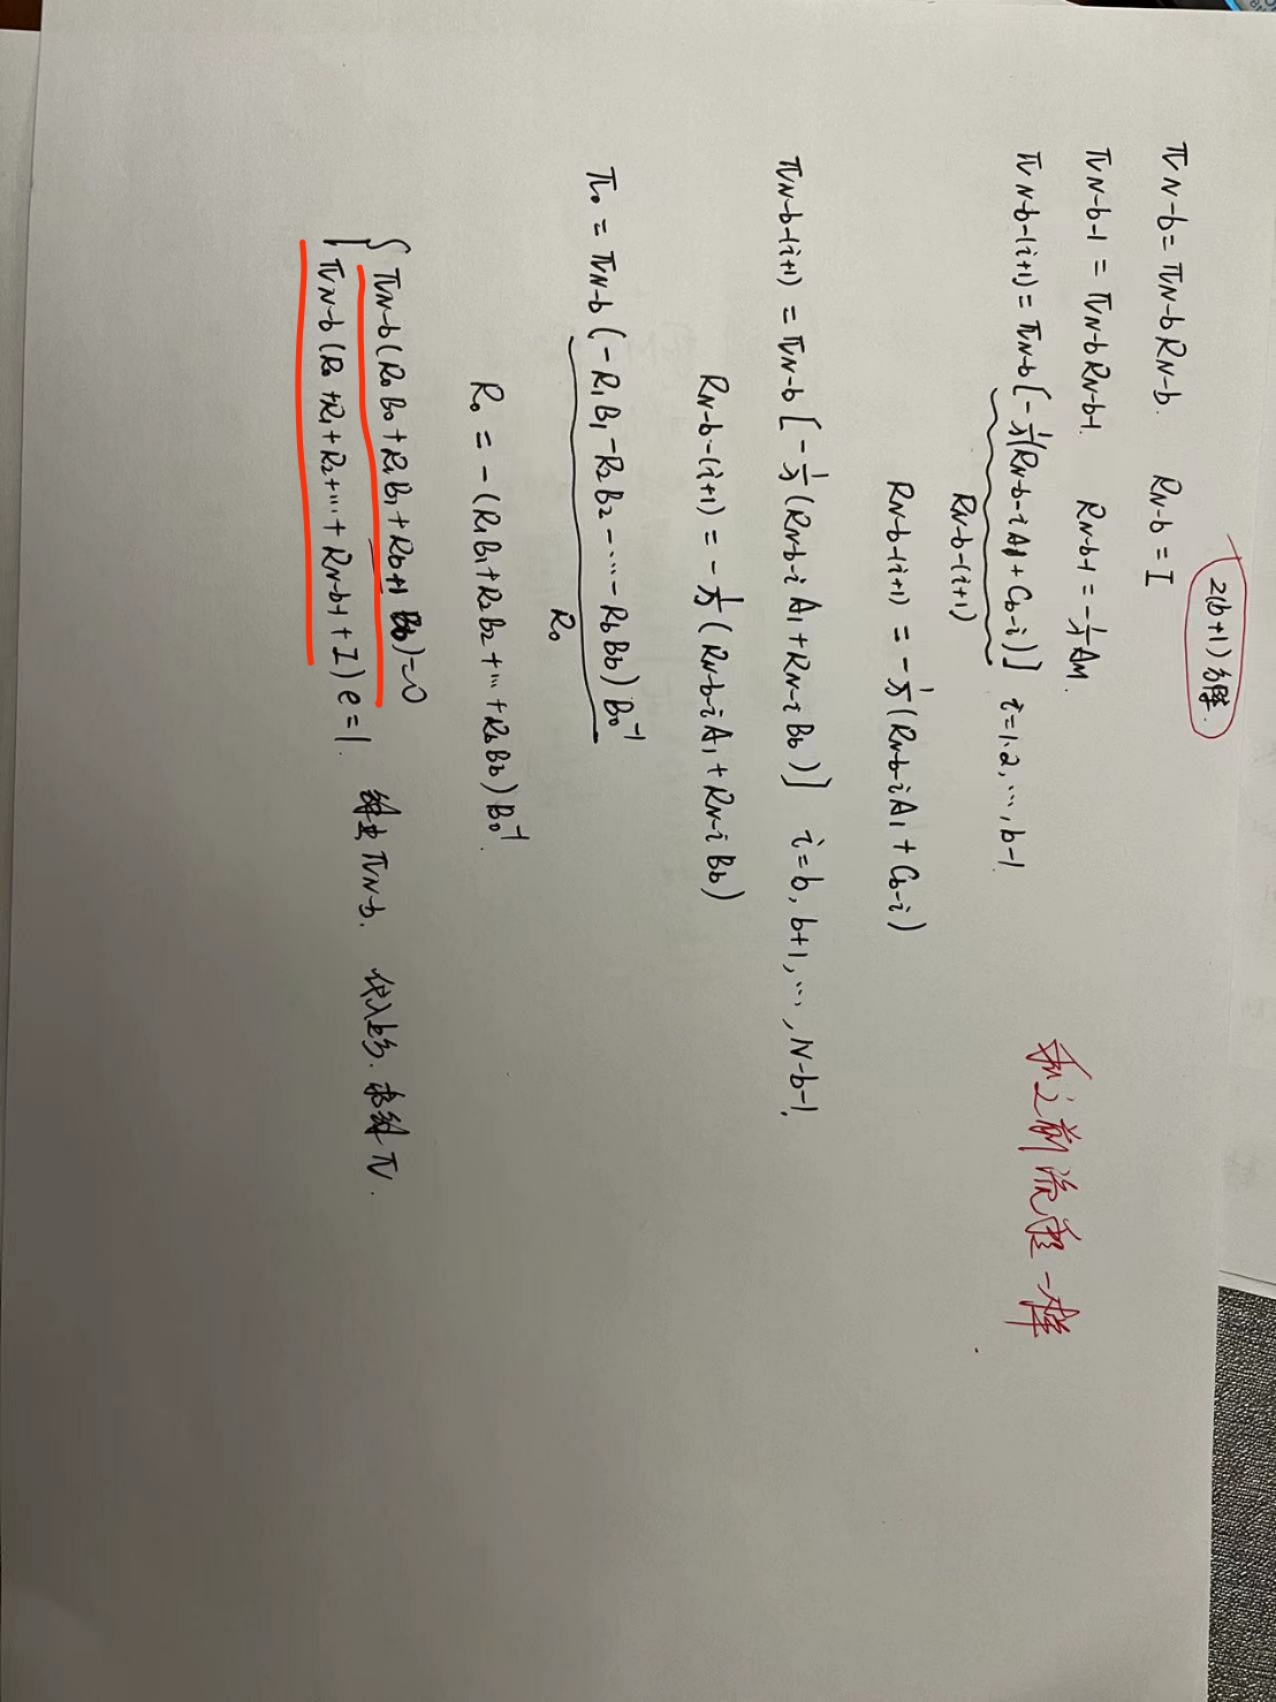 2(b+1) 方阵.
π_{N-b} = π_{N-b} R_{N-b}. R_{N-b} = I
π_{N-b-1} = π_{N-b} R_{N-b-1}. R_{N-b-1} = -\frac{1}{λ} A_M.
π_{N-b-(i+1)} = π_{N-b} [ -\frac{1}{λ} (R_{N-b-i} A_1 + C_{b-i}) ] i=1.2,…,b-1
R_{N-b-(i+1)}
R_{N-b-(i+1)} = -\frac{1}{λ} (R_{N-b-i} A_1 + C_{b-i})
和之前流程一样.
π_{N-b-(i+1)} = π_{N-b} [ -\frac{1}{λ} (R_{N-b-i} A_1 + R_{N-i} B_b) ] i=b, b+1, …, N-b-1.
R_{N-b-(i+1)} = -\frac{1}{λ} (R_{N-b-i} A_1 + R_{N-i} B_b)
π_0 = π_{N-b} (-R_1B_1 - R_2B_2 - … - R_bB_b) B_0^{-1}
R_0
R_0 = -(R_1B_1 + R_2B_2 + … + R_bB_b) B_0^{-1}.
{ π_{N-b} (R_0B_0 + R_1B_1 + R_{b+1} B_b) = 0
π_{N-b} (R_0 + R_1 + R_2 + … + R_{N-b-1} + I) e = 1. 解出 π_{N-b}. 代入上式. 求解 π.